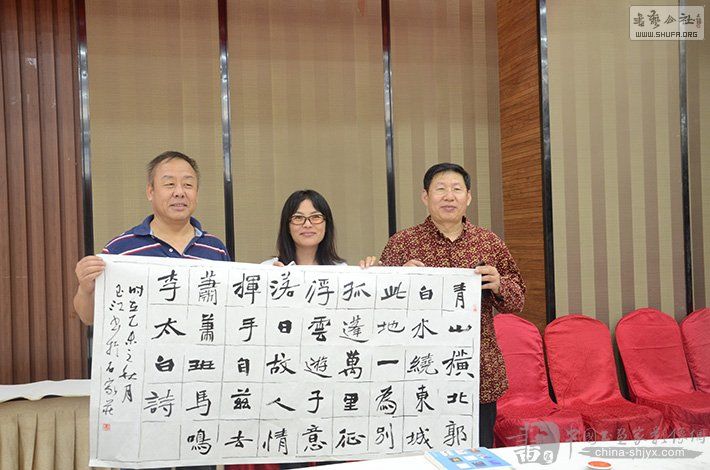 青山橫北郭
白水繞東城
此地一為別
孤蓬萬里征
浮雲遊子意
落日故人情
揮手自茲去
蕭蕭班馬鳴
李太白詩
时在乙未之秋月
玉江书於石家莊
书艺公社
WWW.SHUFA.ORG
china-shjyx.com